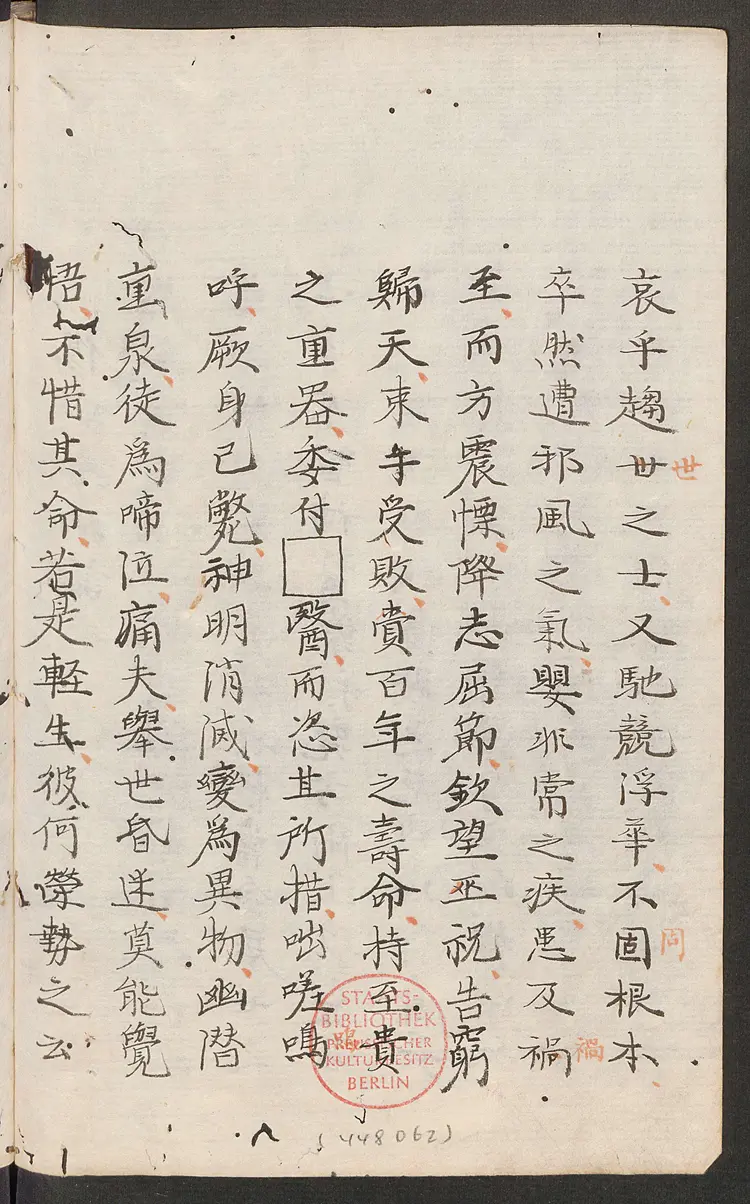 哀乎趨世之士又馳競浮華不固根本
世
同
卒然遭邪風之氣嬰非常之疾患及禍
禍
至而方震慄降志屈節欽望巫祝告窮
歸天束手受敗貴百年之壽命持至貴
之重器委付□醫而恣其所措咄嗟嗚
呼厥身已斃神明消滅變為異物幽潛
重泉徒為啼泣痛夫舉世昏迷莫能覺
悟不惜其命若是軽生彼何榮勢之云
STAATS-
BIBLIOTHEK
PREUSSISCHER
KULTURBESITZ
BERLIN
(448062)